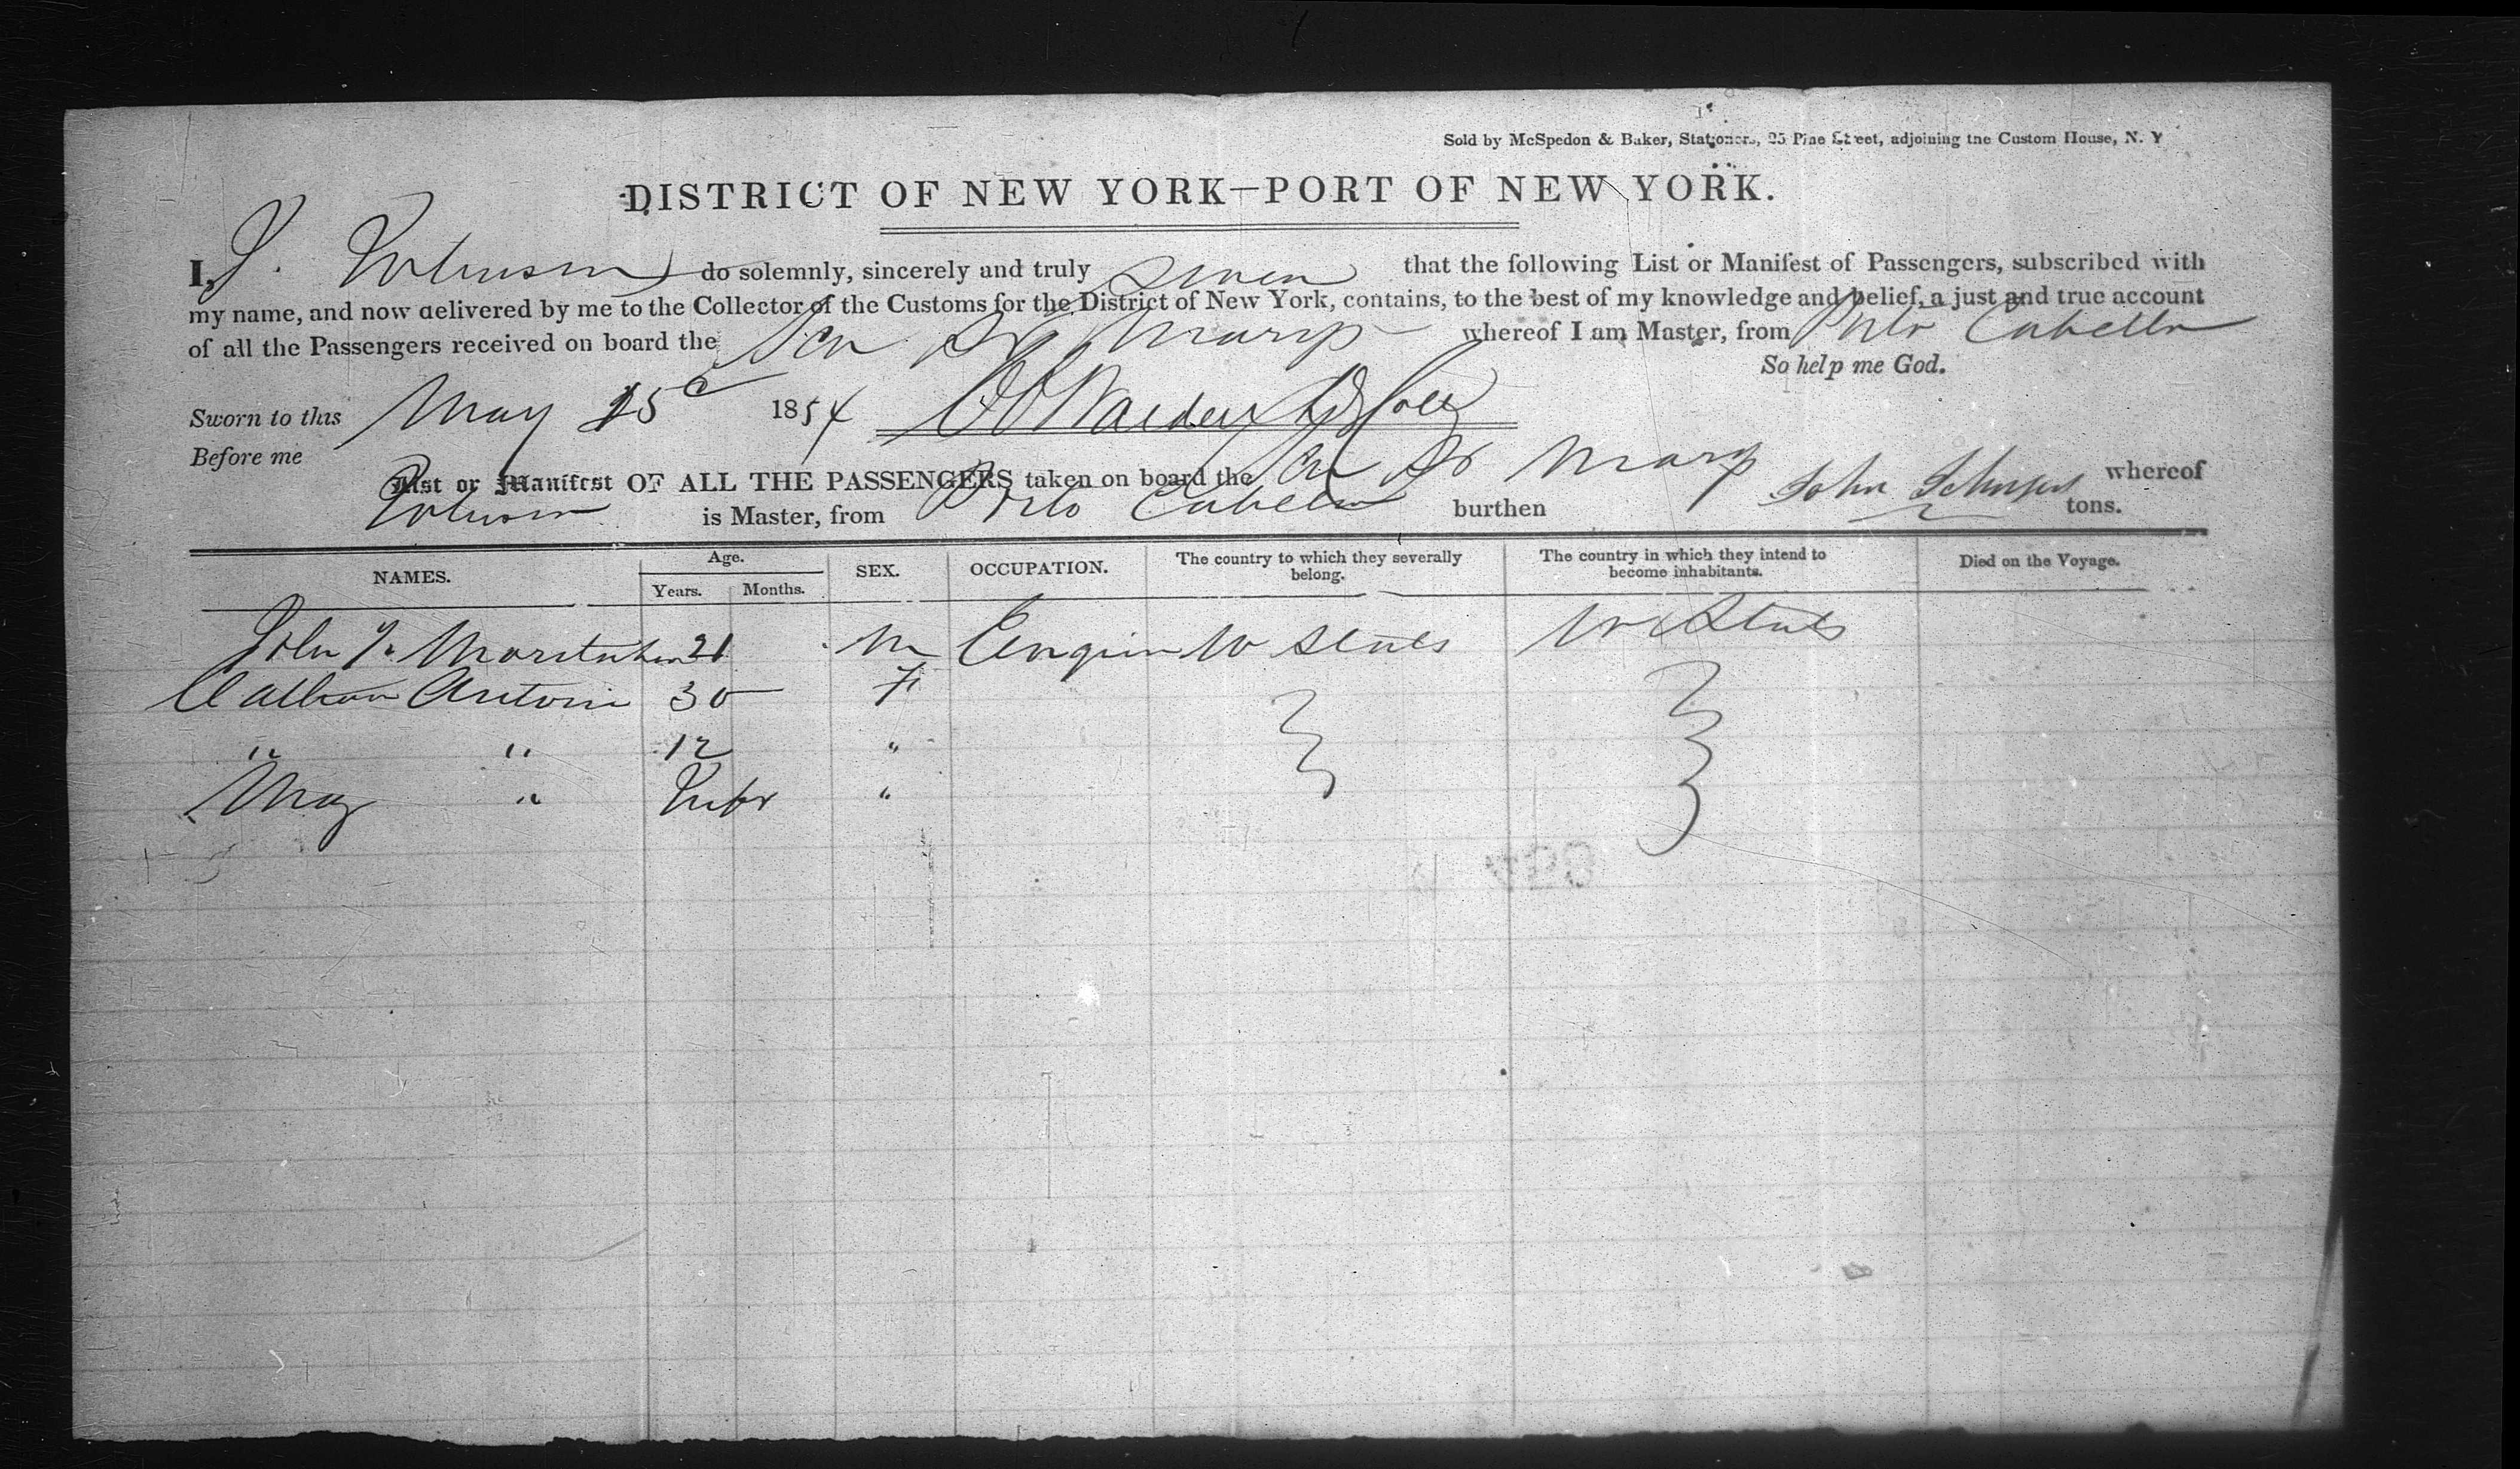 Sold by McSpedon & Baker, Stationers, 25 Pine Street, adjoining the Custom House, N. Y
DISTRICT OF NEW YORK—PORT OF NEW YORK.
I, J. Johnson do solemnly, sincerely and truly swear that the following List or Manifest of Passengers, subscribed with
my name, and now delivered by me to the Collector of the Customs for the District of New York, contains, to the best of my knowledge and belief, a just and true account
of all the Passengers received on board the whereof I am Master, from Porto Cabello
So help me God.
Sworn to this May 15 1854
Before me
List or Manifest OF ALL THE PASSENGERS taken on board the whereof
Johnson is Master, from Porto Cabello burthen John Johnson tons.
NAMES. Age. Years. Months. SEX. OCCUPATION. The country to which they severally belong. The country in which they intend to become inhabitants. Died on the Voyage.
John 21 M Engin U States U States
Antoni 30 F
" " 12 "
May " Infr "